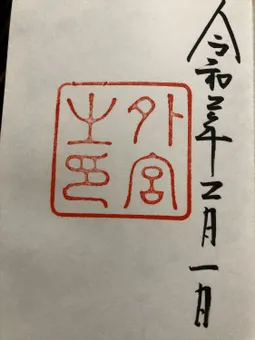 令和二年二月一日
外宮
之印